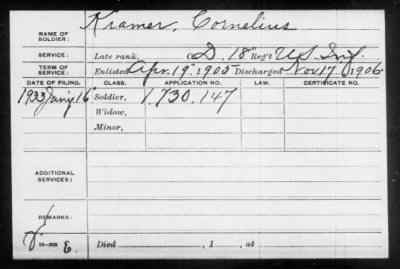 NAME OF SOLDIER: Kramer, Cornelius
SERVICE: Late rank, Co D, 18" Reg't U.S. Inf.
TERM OF SERVICE: Enlisted Apr. 19" 1905 Discharged Nov 17, 1906
DATE OF FILING. CLASS. APPLICATION NO. LAW. CERTIFICATE NO.
1933 Jan'y. 16 Soldier, 1,730,147
Widow,
Minor,
ADDITIONAL SERVICES:
REMARKS:
E.
Died , 1 , at